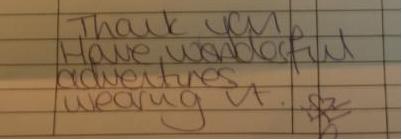 Thank you
Have wonderful
adventures
wearing it.